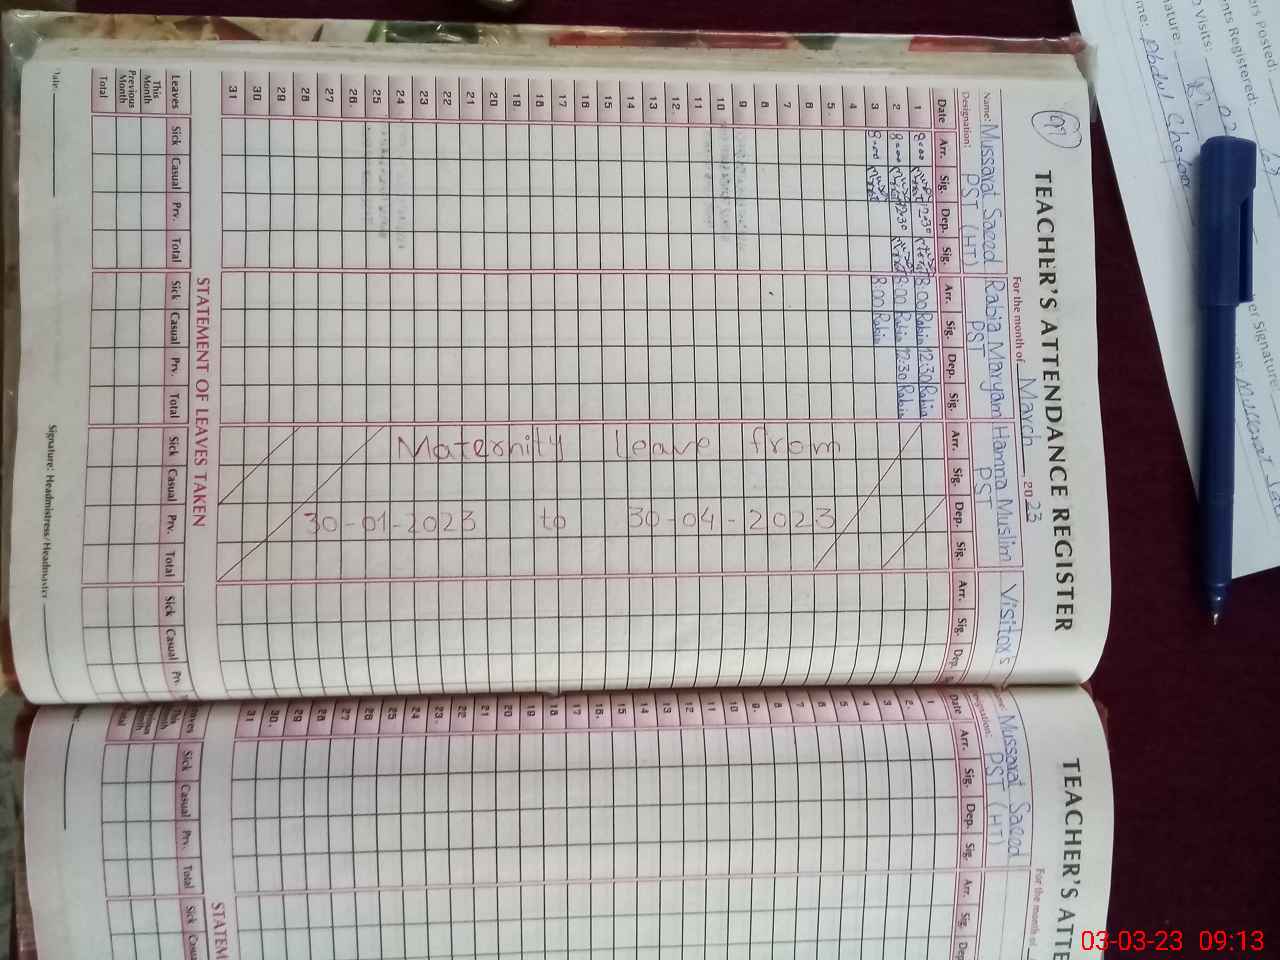 97
TEACHER'S ATTENDANCE REGISTER
For the month of March, 2023
Name: Mussarat Saeed Rabia Maryam Hamna Muslim Visitors
Designation: PST (HT) PST PST
Date Arr. Sig. Dep. Sig. Arr. Sig. Dep. Sig. Arr. Sig. Dep. Sig. Arr. Sig. Dep.
1 8:00 12:30 8:00 Rabia 12:30 Rabia
2 8:00 12:30 8:00 Rabia 12:30 Rabia
3 8:00 8:00 Rabia
4
5
6
7
8
9
10
11
12
13
14
15
16
17
18
19
20
21
22
23
24
25
26
27
28
29
30
31
Maternity leave from
30-01-2023 to 30-04-2023
STATEMENT OF LEAVES TAKEN
Leaves Sick Casual Prv. Total Sick Casual Prv. Total Sick Casual Prv. Total Sick Casual Prv.
This Month
Previous Month
Total
Date:
Signature: Headmistress/Headmaster
TEACHER'S ATTE
For the month of
Mussarat Saeed
PST (HT)
Date Arr. Sig. Dep. Sig. Arr. Sig. Dep
1
2
3
4
5
6
7
8
9
10
11
12
13
14
15
16
17
18
19
20
21
22
23
24
25
26
27
28
29
30
31
STATEM
Sick Casual Prv. Total Sick
ers Posted:
nts Registered:
Visits:
ature:
me: Abdul Ghafoor
er Signature:
03-03-23 09:13